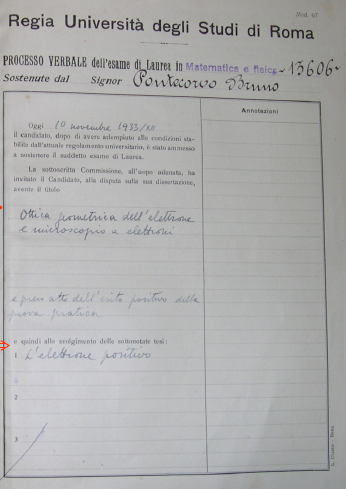 Mod. 67
Regia Università degli Studi di Roma
PROCESSO VERBALE dell'esame di Laurea in Matematica e fisica - 13606 -
Sostenute dal Signor Pontecorvo Bruno
Annotazioni
Oggi 10 novembre 1933/XII
il candidato, dopo di avere adempiuto alle condizioni sta-
bilite dall'attuale regolamento universitario, è stato ammesso
a sostenere il suddetto esame di Laurea.
La sottoscritta Commissione, all'uopo adunata, ha
invitato il Candidato, alla disputa sulla sua dissertazione,
avente il titolo
Ottica geometrica dell'elettrone
e microscopio a elettroni
e preso atto dell'esito positivo della
prova pratica
e quindi allo svolgimento delle sottonotate tesi:
1 L'elettrone positivo
2
3